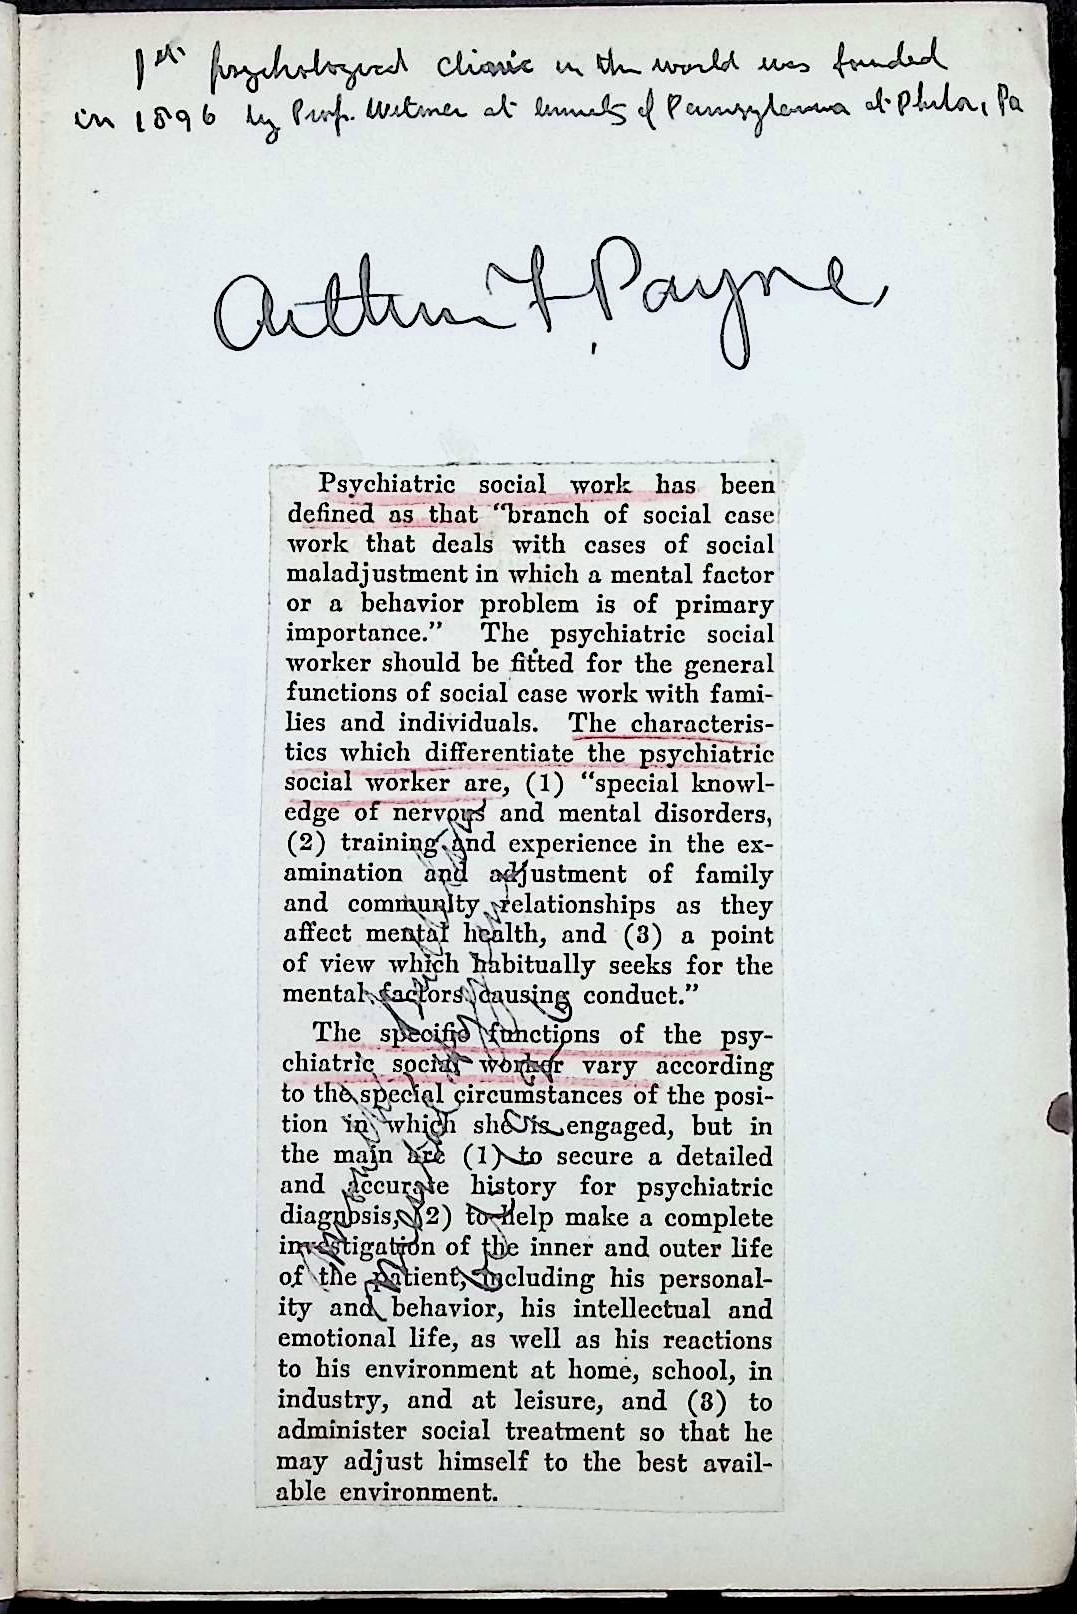 1st psychological clinic in the world was founded
in 1896 by Prof. Witmer at of Pennsylvania at Phila, Pa
Arthur F. Payne,
Psychiatric social work has been
defined as that “branch of social case
work that deals with cases of social
maladjustment in which a mental factor
or a behavior problem is of primary
importance.” The psychiatric social
worker should be fitted for the general
functions of social case work with fami-
lies and individuals. The characteris-
tics which differentiate the psychiatric
social worker are, (1) “special knowl-
edge of nervous and mental disorders,
(2) training and experience in the ex-
amination and adjustment of family
and community relationships as they
affect mental health, and (3) a point
of view which habitually seeks for the
mental factors causing conduct.”
The specific functions of the psy-
chiatric social worker vary according
to the special circumstances of the posi-
tion in which she is engaged, but in
the main are (1) to secure a detailed
and accurate history for psychiatric
diagnosis, (2) to help make a complete
investigation of the inner and outer life
of the patient, including his personal-
ity and behavior, his intellectual and
emotional life, as well as his reactions
to his environment at home, school, in
industry, and at leisure, and (3) to
administer social treatment so that he
may adjust himself to the best avail-
able environment.
Monthly Bulletin
Mental Hygiene